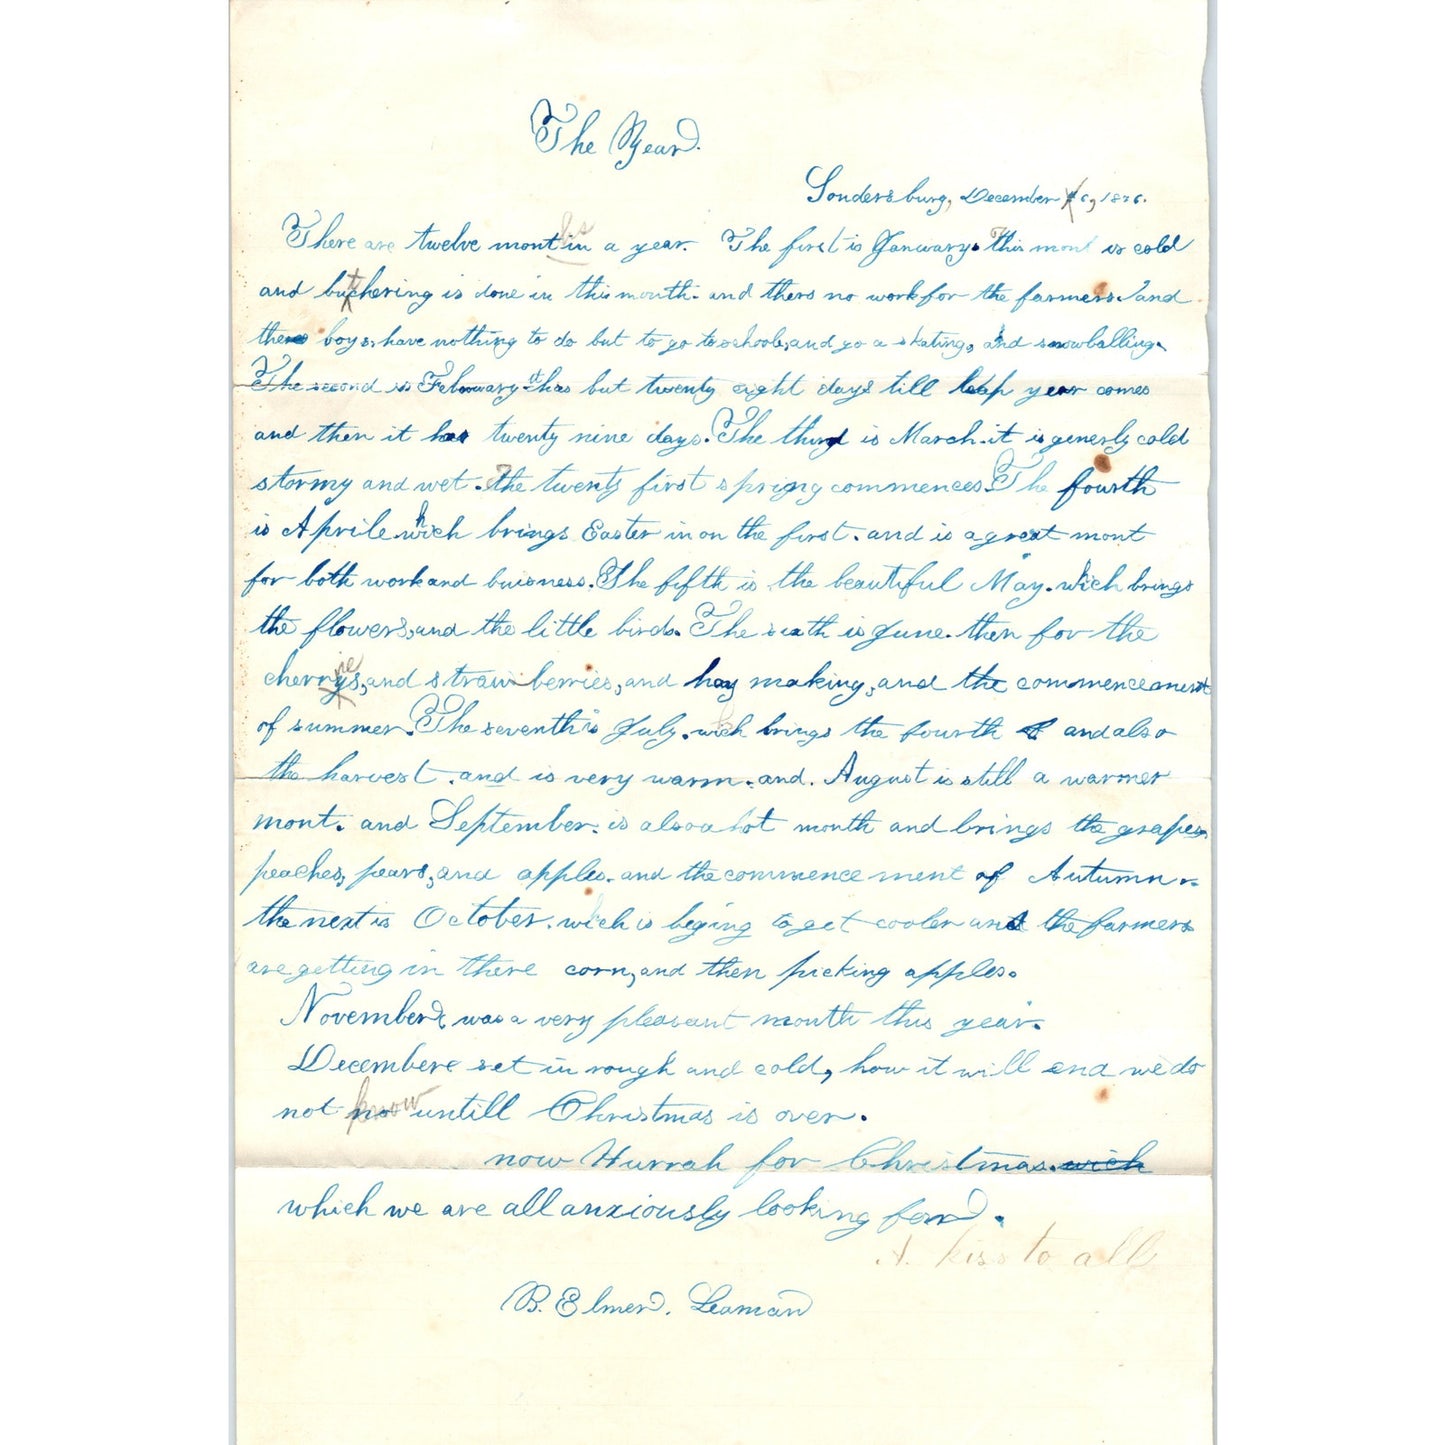 The Year.
Sondersburg, December 6, 1876.
There are twelve months in a year. The first is Januwary. This mont is cold
and butchering is done in this month. and thers no work for the farmers. and
there boys, have nothing to do but to go to schoole, and go a skating, and snowballing.
The second is Februwary it has but twenty eight days till leap year comes
and then it has twenty nine days. The third is March. it is generly cold
stormy and wet. The twenty first spring commences. The fourth
is Aprile. which brings Easter in on the first. and is a great mont
for both work and buisness. The fifth is the beautiful May. which brings
the flowers, and the little birds. The sixth is June. then for the
cherries, and strawberries, and hay making, and the commencement
of summer. The seventh is July. wich brings the fourth and also
the harvest. and is very warm. and. August is still a warmer
mont. and September. is also a hot month and brings the grapes,
peaches, pears, and apples. and the commencement of Autumn.
the next is October. which is beging to get cooler and the farmers
are getting in there corn, and then picking apples.
Novembere was a very pleasant month this year.
Decembere set in rough and cold, how it will end we do
not know untill Christmas is over.
now Hurrah for Christmas. wich
which we are all anxiously looking for.
A kiss to all
B. Elmer. Leaman